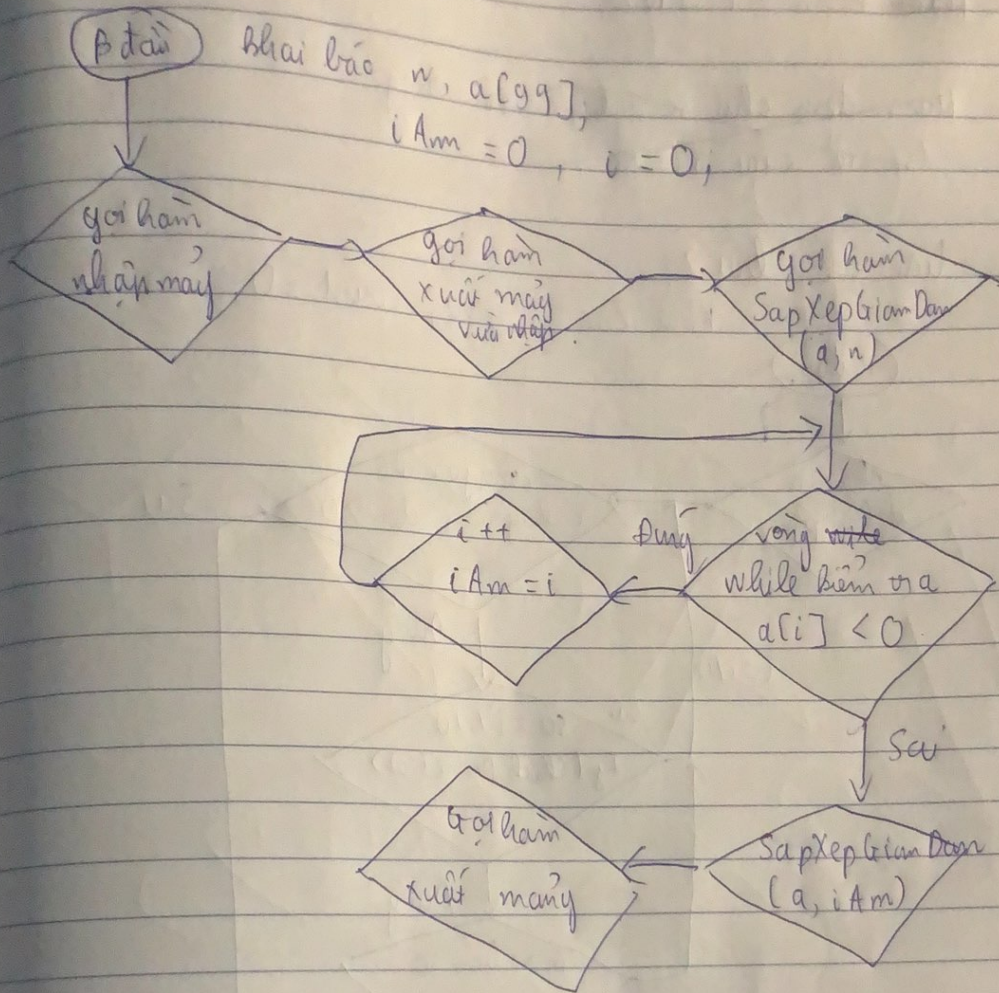 B đầu
Khai báo n, a[99],
iAm = 0, i = 0,
gọi hàm
nhập mảng
gọi hàm
xuất mảng
vừa nhập
gọi hàm
SapXepGiamDan
(a, n)
vòng while
while kiểm tra
a[i] < 0
Đúng
i++
iAm = i
Sai
SapXepGiamDan
(a, iAm)
Gọi hàm
xuất mảng